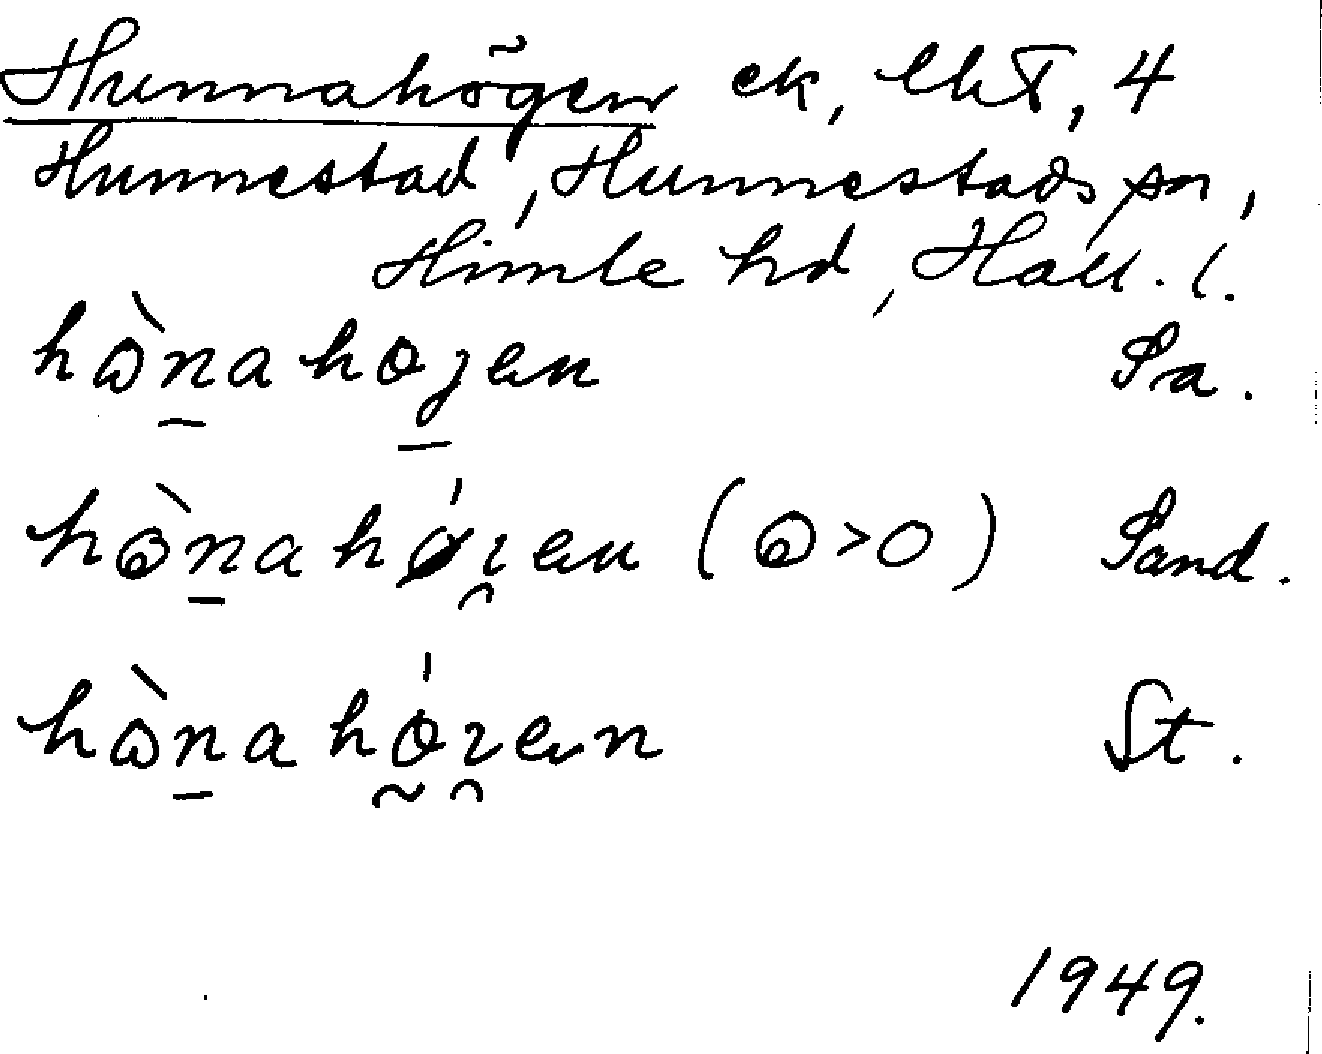 Hunnahögen ek, lht, 4
Hunnestad, Hunnestads sn,
Himle hd, Hall. l.
hὼn̲aho̲ȷen Sa.
hὼn̲ahǿɿ̯en (ɷ>o) Sand.
hὼn̲ahó̰ɿ̯en St.
1949.